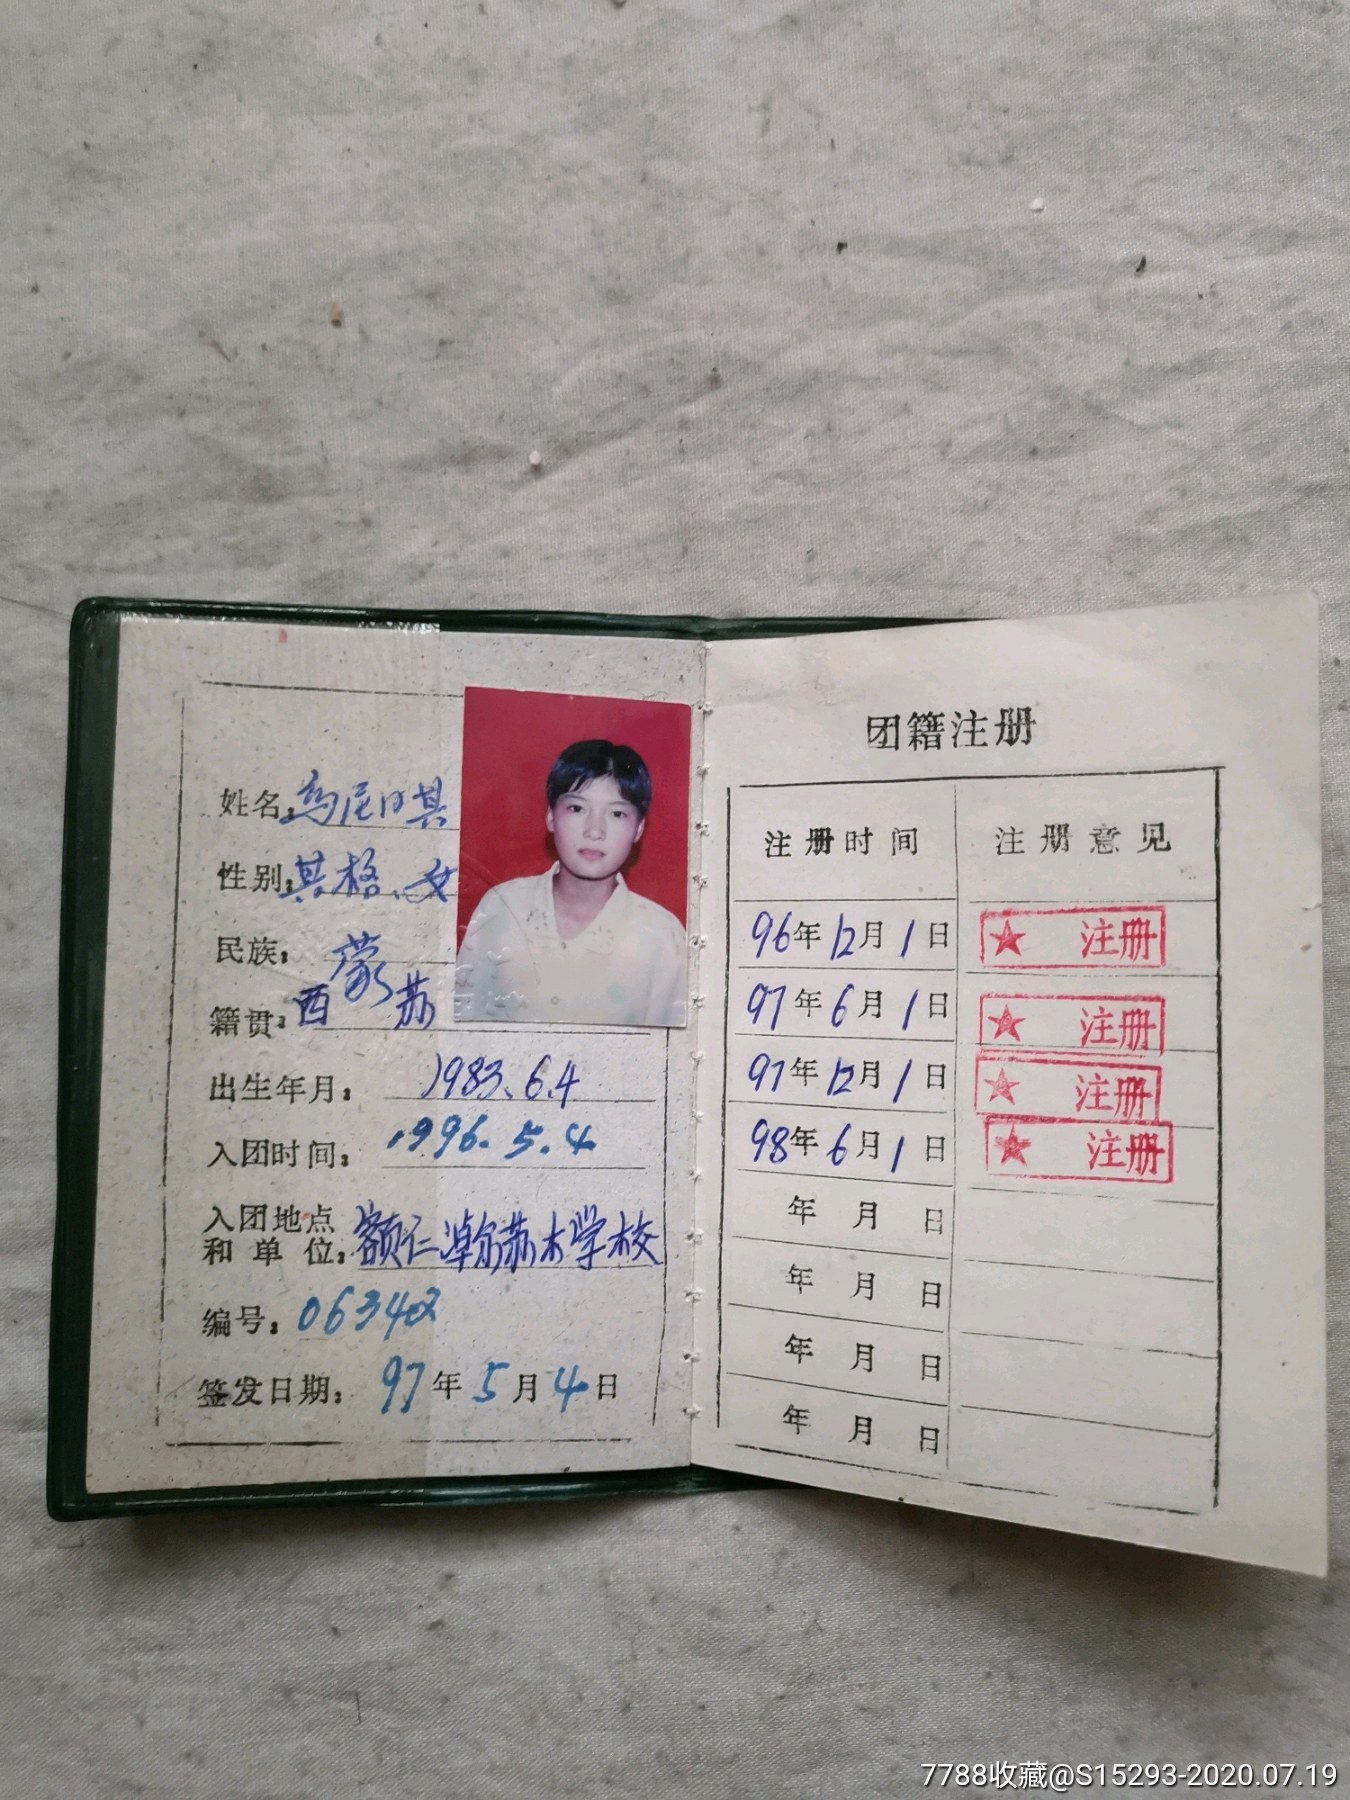 姓名：乌尼日其
性别：其格、女
民族：蒙
籍贯：西苏
出生年月：1983.6.4
入团时间：1996.5.4
入团地点
和单位：额仁淖尔苏木学校
编号：063402
签发日期：97年5月4日
团籍注册
注册时间 注册意见
96年12月1日 ★ 注册
97年6月1日 ★ 注册
97年12月1日 ★ 注册
98年6月1日 ★ 注册
年 月 日
年 月 日
年 月 日
年 月 日
7788收藏@S15293-2020.07.19